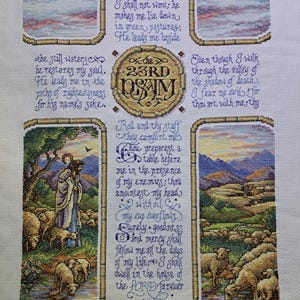 I shall not want; he
makes me lie down
in green pastures.
He leads me beside
the still waters
he restores my soul.
He leads me in the
paths of righteousness
for his name's sake.
the
23RD
PSALM
Even though I walk
through the valley
of the shadow of death,
I fear no evil; for
thou art with me thy
Rod and thy staff
they comfort me
Thou preparest a
table before
me in the presence
of my enemies; thou
anointest my head
with oil
my cup overflows.
Surely goodness
and mercy shall
follow me all the days
of my life; I shall
dwell in the house
of the LORD forever